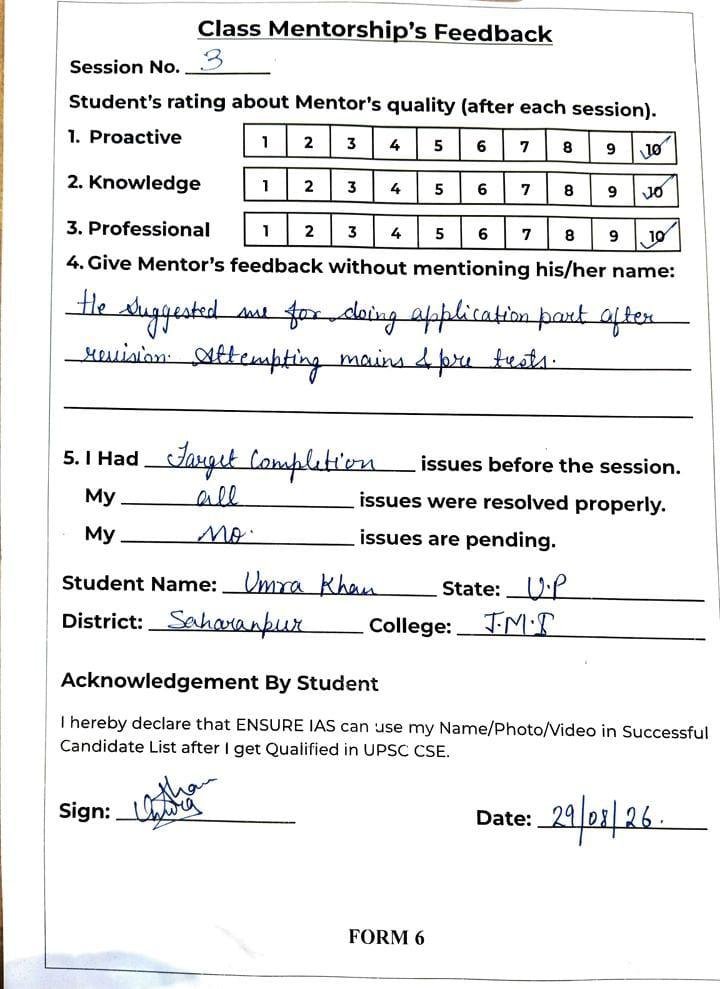 Class Mentorship's Feedback
Session No. 3
Student's rating about Mentor's quality (after each session).
1. Proactive 1 2 3 4 5 6 7 8 9 10
2. Knowledge 1 2 3 4 5 6 7 8 9 10
3. Professional 1 2 3 4 5 6 7 8 9 10
4. Give Mentor's feedback without mentioning his/her name:
He suggested me for doing application part after
revision. Attempting mains & pre tests.
5. I Had Target Completion issues before the session.
My all issues were resolved properly.
My No. issues are pending.
Student Name: Umra Khan State: U.P
District: Saharanpur College: J.M.I
Acknowledgement By Student
I hereby declare that ENSURE IAS can use my Name/Photo/Video in Successful
Candidate List after I get Qualified in UPSC CSE.
Sign: Umra Khan Date: 29/08/26.
FORM 6